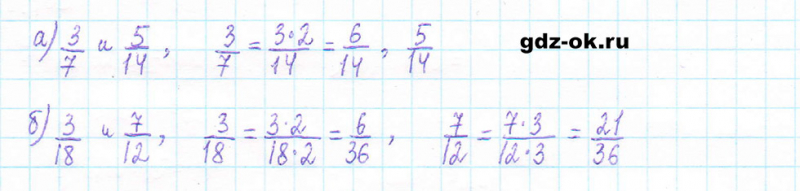 а) 3/7 и 5/14, 3/7 = 3·2/14 = 6/14, 5/14
gdz-ok.ru
б) 3/18 и 7/12, 3/18 = 3·2/18·2 = 6/36, 7/12 = 7·3/12·3 = 21/36